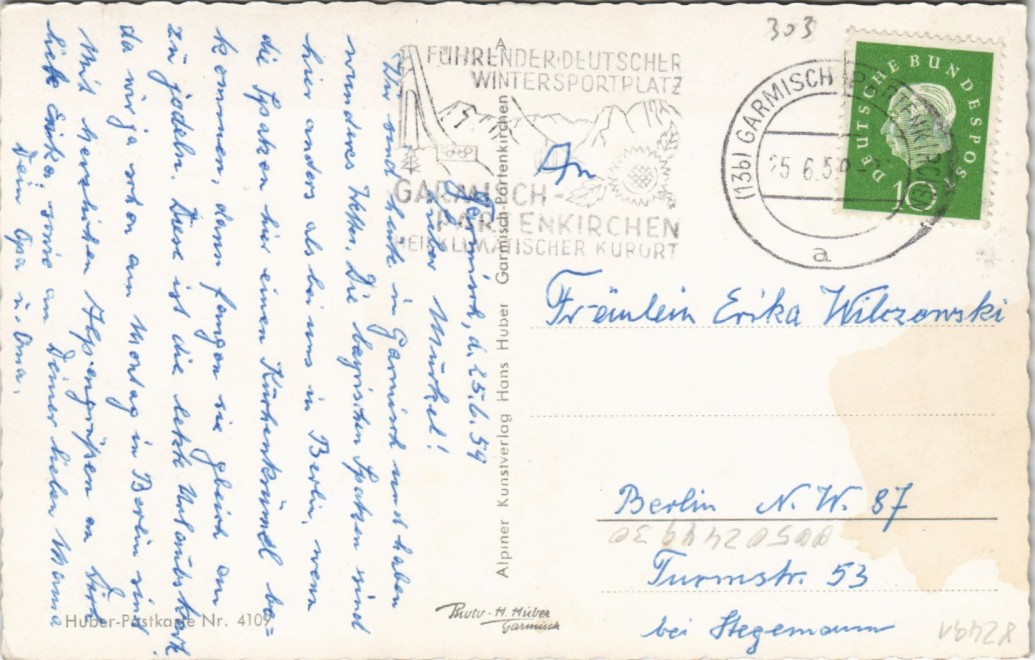 Garmisch, d. 25.6.59
Mein lieber Murkel!
Wir sind heute in Garmisch und haben
wunderes Wetter. Die bayrischen Spatzen sind
hier anders als bei uns in Berlin, wenn
die Spatzen hier einen Kuchenkrümel be=
kommen, dann fangen sie gleich an
zu jodeln. Diese ist die letzte Urlaubskarte
da wir ja schon am Montag in Berlin sind
Mit herzlichen Alpengrüßen an Dich
liebe Erika, sowie an Deiner lieben Mama
Dein Opa u. Oma.
303
FÜHRENDER DEUTSCHER
WINTERSPORTPLATZ
GARMISCH-
PARTENKIRCHEN
HEILKLIMATISCHER KURORT
(13b) GARMISCH-PARTENKIRCHEN
25.6.59
a
DEUTSCHE BUNDESPOST
10
An
Fräulein Erika Wilczewski
Berlin N.W. 87
Turmstr. 53
bei Stegemann
A
Alpiner Kunstverlag Hans Huber Garmisch-Partenkirchen
Huber-Postkarte Nr. 4109
Photo-H. Huber
Garmisch